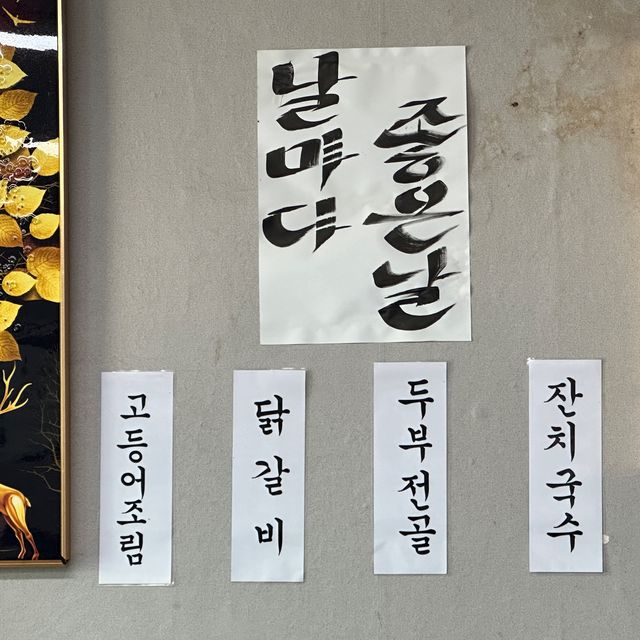 날마다
좋은날
고등어조림
닭갈비
두부전골
잔치국수